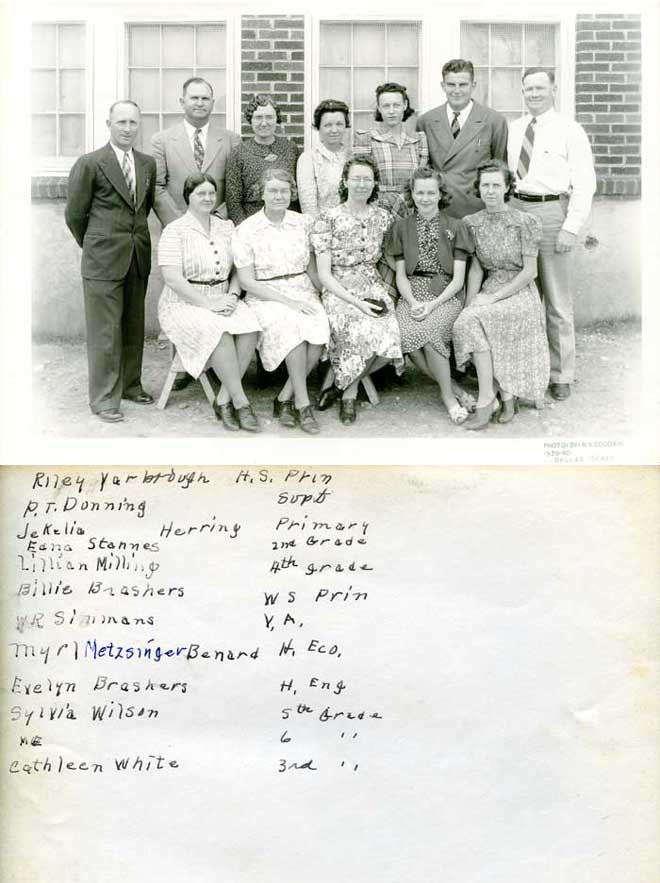 PHOTO BY N.V. GOODWIN
1939-40
DALLAS TEXAS
Riley Yarbrough H.S. Prin
P.T. Donning Supt
Jekelia Herring Primary
Edna Stannes 2nd Grade
Lillian Milling 4th grade
Billie Brashers W S Prin
WR Simmans V. A.
Myrl Metzsinger Benard H. Eco.
Evelyn Braskers H. Eng
Sylvia Wilson 5th Grade
ME 6 ''
Cathleen White 3rd ''